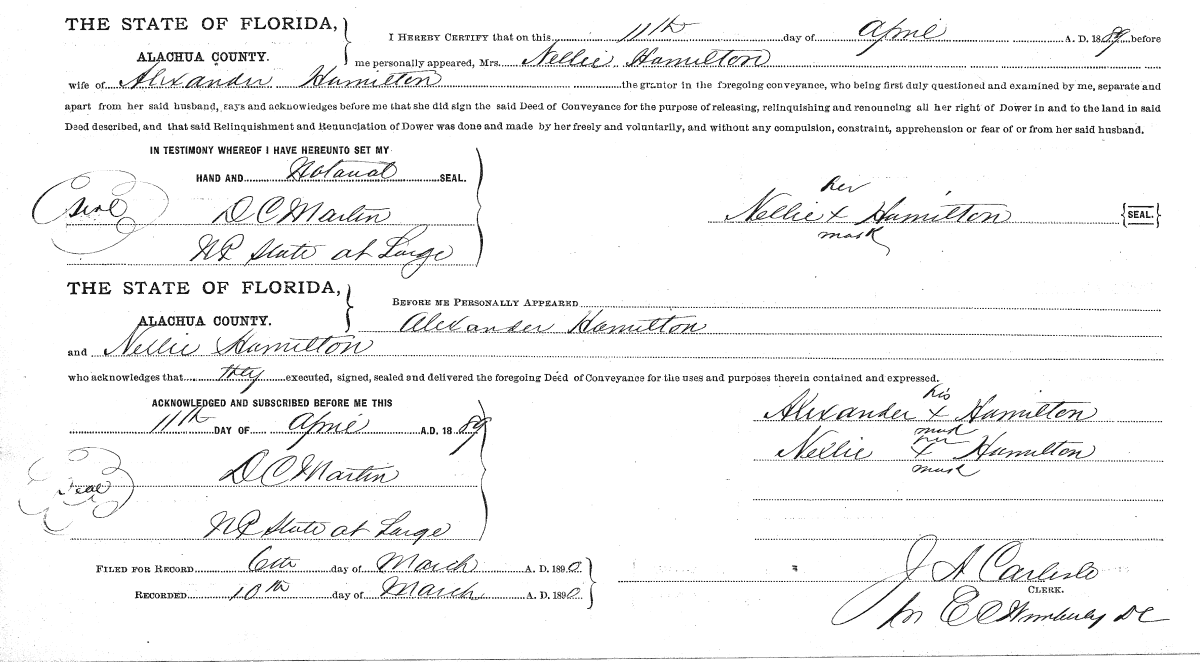 THE STATE OF FLORIDA,
ALACHUA COUNTY.
I HEREBY CERTIFY that on this 11th day of April A. D. 1889 before
me personally appeared, Mrs. Nellie Hamilton
wife of Alexander Hamilton the grantor in the foregoing conveyance, who being first duly questioned and examined by me, separate and
apart from her said husband, says and acknowledges before me that she did sign the said Deed of Conveyance for the purpose of releasing, relinquishing and renouncing all her right of Dower in and to the land in said
Deed described, and that said Relinquishment and Renunciation of Dower was done and made by her freely and voluntarily, and without any compulsion, constraint, apprehension or fear of or from her said husband.
IN TESTIMONY WHEREOF I HAVE HEREUNTO SET MY
HAND AND Notarial SEAL.
Seal
D C Martin
NP State at Large
her
Nellie x Hamilton {SEAL.}
mark
THE STATE OF FLORIDA,
ALACHUA COUNTY.
BEFORE ME PERSONALLY APPEARED
Alexander Hamilton
and Nellie Hamilton
who acknowledges that they executed, signed, sealed and delivered the foregoing Deed of Conveyance for the uses and purposes therein contained and expressed.
ACKNOWLEDGED AND SUBSCRIBED BEFORE ME THIS
11th DAY OF April A.D. 1889
Seal
D C Martin
NP State at Large
his
Alexander x Hamilton
mark
her
Nellie x Hamilton
mark
FILED FOR RECORD 6th day of March A. D. 1890.
RECORDED 10th day of March A. D. 1890.
J A Carlisle
CLERK.
per E C Wimberly DC